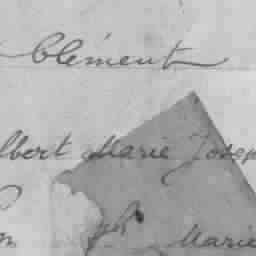 Clément
lbert Marie Josep
Marie